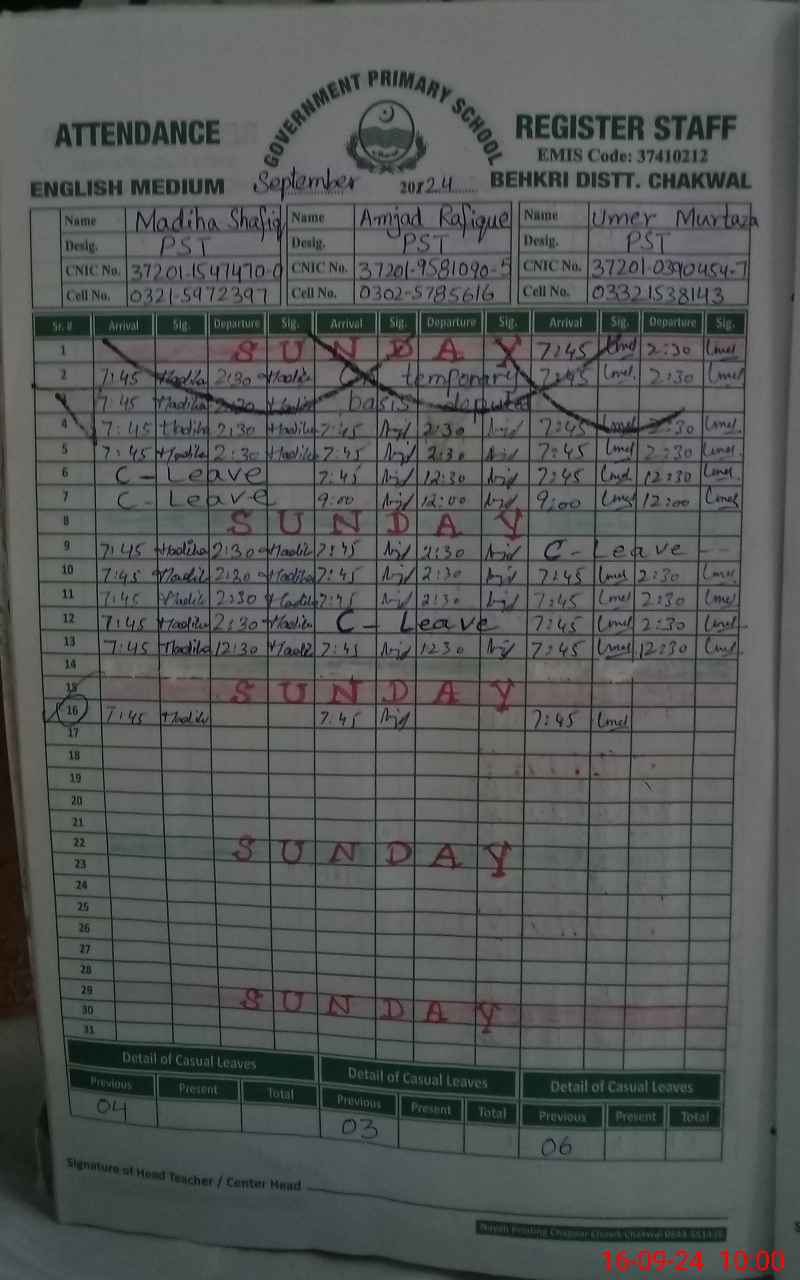 GOVERNMENT PRIMARY SCHOOL
ATTENDANCE REGISTER STAFF
EMIS Code: 37410212
ENGLISH MEDIUM September 20 24 BEHKRI DISTT. CHAKWAL
Name Madiha Shafiq Name Amjad Rafique Name Umer Murtaza
Desig. PST Desig. PST Desig. PST
CNIC No. 37201-1547470-0 CNIC No. 37201-9581090-5 CNIC No. 37201-0390454-7
Cell No. 0321-5972397 Cell No. 0302-5785616 Cell No. 03321538143
Sr. # Arrival Sig. Departure Sig. Arrival Sig. Departure Sig. Arrival Sig. Departure Sig.
1 SUNDAY 7:45 Umel 2:30 Umel
2 7:45 Madiha 2:30 Madiha temporary 7:45 Umel 2:30 Umel
3 7:45 Madiha 2:30 Madiha basis
4 7:45 Madiha 2:30 Madiha 7:45 Amjd 2:30 Amjd 7:45 Umel 2:30 Umel
5 7:45 Madiha 2:30 Madiha 7:45 Amjd 2:30 Amjd 7:45 Umel 2:30 Umel
6 C-Leave 7:45 Amjd 12:30 Amjd 7:45 Umel 12:30 Umel
7 C-Leave 9:00 Amjd 12:00 Amjd 9:00 Umel 12:00 Umel
8 SUNDAY
9 7:45 Madiha 2:30 Madiha 7:45 Amjd 2:30 Amjd C-Leave
10 7:45 Madiha 2:30 Madiha 7:45 Amjd 2:30 Amjd 7:45 Umel 2:30 Umel
11 7:45 Madiha 2:30 Madiha 7:45 Amjd 2:30 Amjd 7:45 Umel 2:30 Umel
12 7:45 Madiha 2:30 Madiha C-Leave 7:45 Umel 2:30 Umel
13 7:45 Madiha 12:30 Madiha 7:45 Amjd 1230 Amjd 7:45 Umel 12:30 Umel
14
15 SUNDAY
16 7:45 Madiha 7:45 Amjd 7:45 Umel
17
18
19
20
21
22 SUNDAY
23
24
25
26
27
28
29 SUNDAY
30
31
Detail of Casual Leaves Detail of Casual Leaves Detail of Casual Leaves
Previous Present Total Previous Present Total Previous Present Total
04 03 06
Signature of Head Teacher / Center Head
16-09-24 10:00